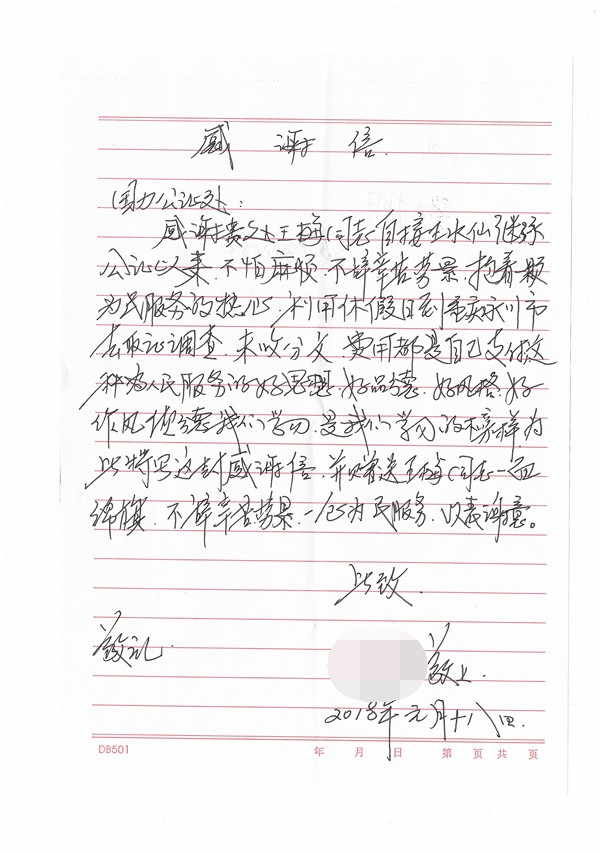 感谢信
国力公证处：
感谢贵处王梅同志自接王水仙继承
公证以来，不怕麻烦，不辞辛苦劳累，抱着颗
为民服务的热心，利用休假日到重庆永川市
去取证调查，未收分文，费用都是自己支付，这
种为人民服务的好思想、好品德、好风格、好
作风值得我们学习，是我们学习的好榜样，为
此特写这封感谢信，并赠送王梅同志一面
锦旗，不辞辛苦劳累，一心为民服务，以表谢意。
此致
敬礼
敬上
2018年元月十八日
DB501 年 月 日 第 页 共 页